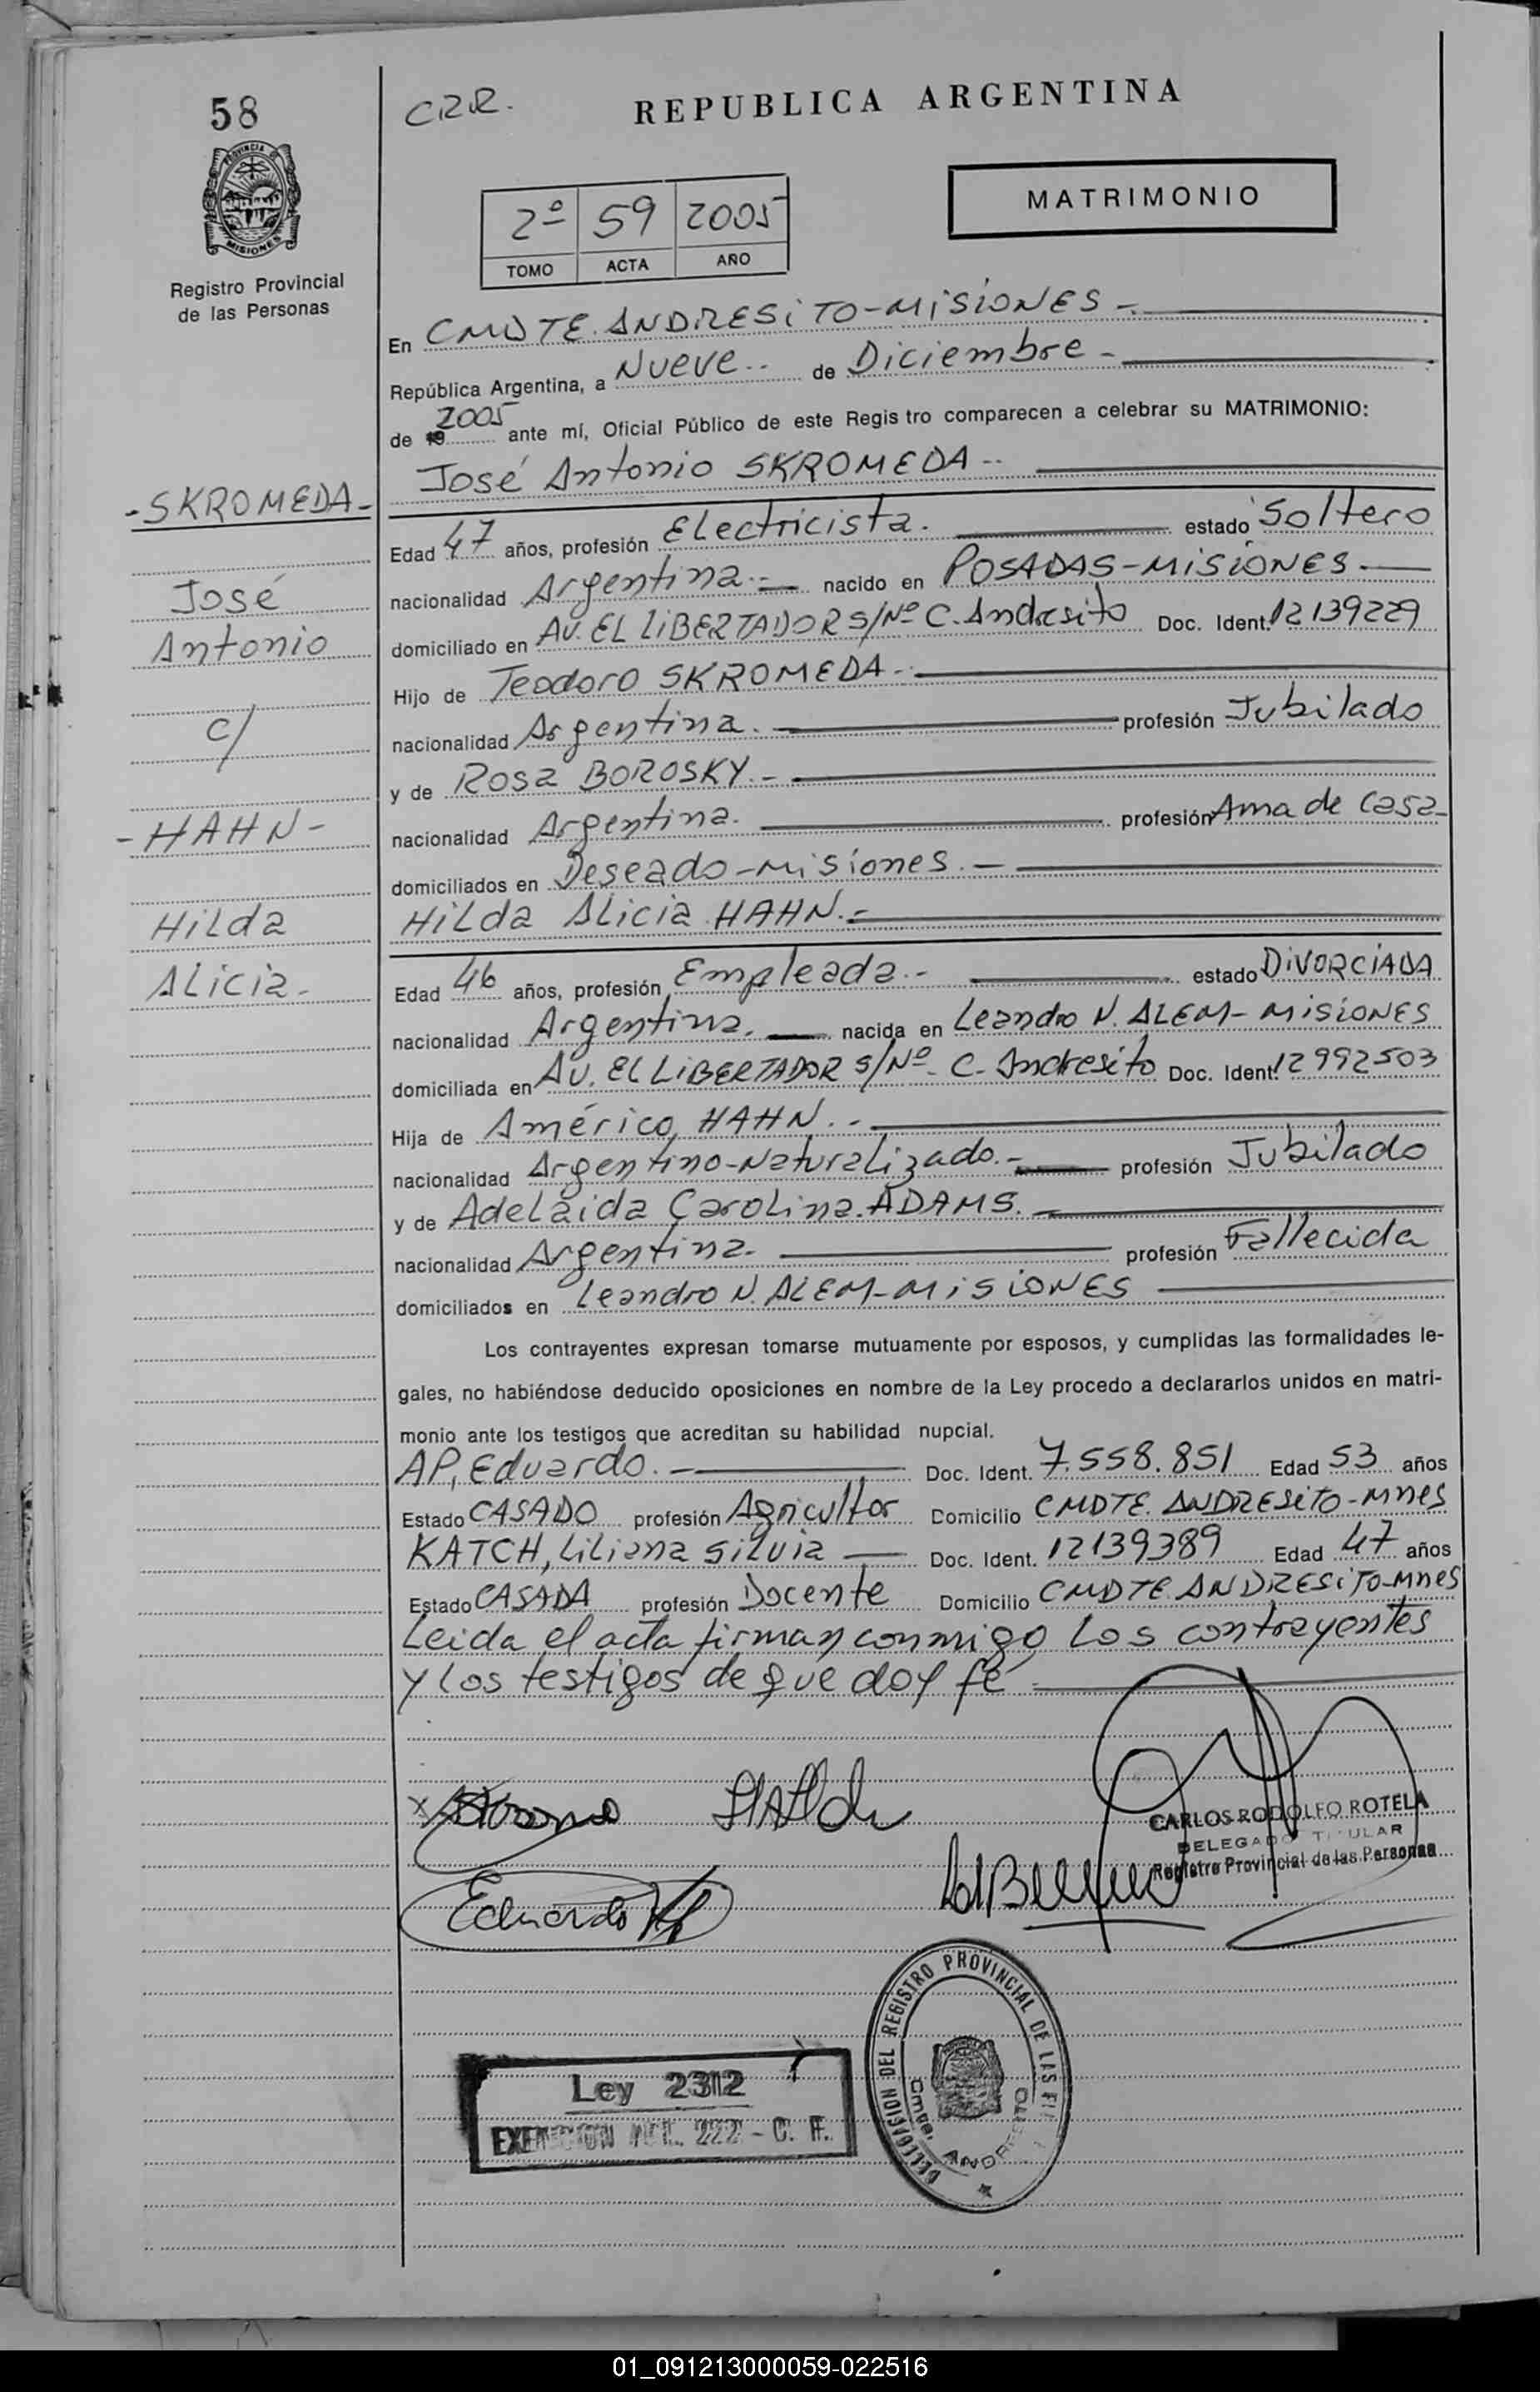 58
C.R.R.
REPUBLICA ARGENTINA
PROVINCIA DE
MISIONES
Registro Provincial
de las Personas
MATRIMONIO
2º 59 2005
TOMO ACTA AÑO
En CMDTE. ANDRESITO-MISIONES -.
República Argentina, a Nueve.. de Diciembre -
de 19 2005 ante mí, Oficial Público de este Regis tro comparecen a celebrar su MATRIMONIO:
José Antonio SKROMEDA --
-SKROMEDA-
Edad 47 años, profesión Electricista. estado Soltero
José
nacionalidad Argentina.- nacido en POSADAS-MISIONES.
Antonio
domiciliado en AV. EL LIBERTADOR S/Nº C. Andresito Doc. Ident. 12139229
Hijo de Teodoro SKROMEDA -.
c/
nacionalidad Argentina. profesión Jubilado
y de Rosa BOROSKY.-
-HAHN-
nacionalidad Argentina. profesión Ama de Casa-
domiciliados en Deseado-Misiones.-
Hilda
Hilda Alicia HAHN.-
Alicia-
Edad 46 años, profesión Empleada.- estado DIVORCIADA
nacionalidad Argentina. nacida en Leandro N. ALEM-MISIONES
domiciliada en AV. EL LIBERTADOR S/Nº- C. Andresito Doc. Ident. 12992503
Hija de Américo HAHN.-
nacionalidad Argentino-Naturalizado.- profesión Jubilado
y de Adelaida Carolina ADAMS.-
nacionalidad Argentina. profesión Fallecida
domiciliados en Leandro N. ALEM-MISIONES
Los contrayentes expresan tomarse mutuamente por esposos, y cumplidas las formalidades le-
gales, no habiéndose deducido oposiciones en nombre de la Ley procedo a declararlos unidos en matri-
monio ante los testigos que acreditan su habilidad nupcial.
AP, Eduardo.- Doc. Ident. 7.558.851 Edad 53 años
Estado CASADO profesión Agricultor Domicilio CMDTE. ANDRESITO-Mnes
KATCH, Liliana Silvia Doc. Ident. 12139389 Edad 47 años
Estado CASADA profesión Docente Domicilio CMDTE. ANDRESITO-Mnes
Leida el acta firman conmigo los contrayentes
y los testigos de que doy fé
CARLOS RODOLFO ROTELA
DELEGADO TITULAR
Registro Provincial de las Personas
Eduardo Ap
DELEGACION DEL REGISTRO PROVINCIAL DE LAS
Cmte. ANDRESITO
Ley 2312
EXENCION Art. 222 - C. F.
01_091213000059-022516